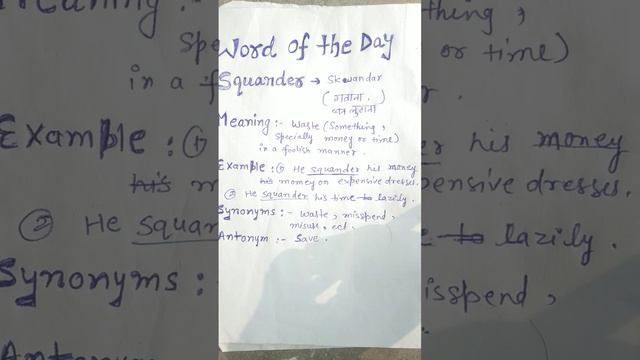 Word of the Day
Squander → Skwandar
(गवाना.)
धन लुटाना
Meaning :- Waste (Something,
specially money or time)
in a foolish manner.
Example :- ① He squander his money
his money on expensive dresses.
② He squander his time to lazily.
Synonyms :- Waste, misspend,
misuse, ect.
Antonym :- Save.